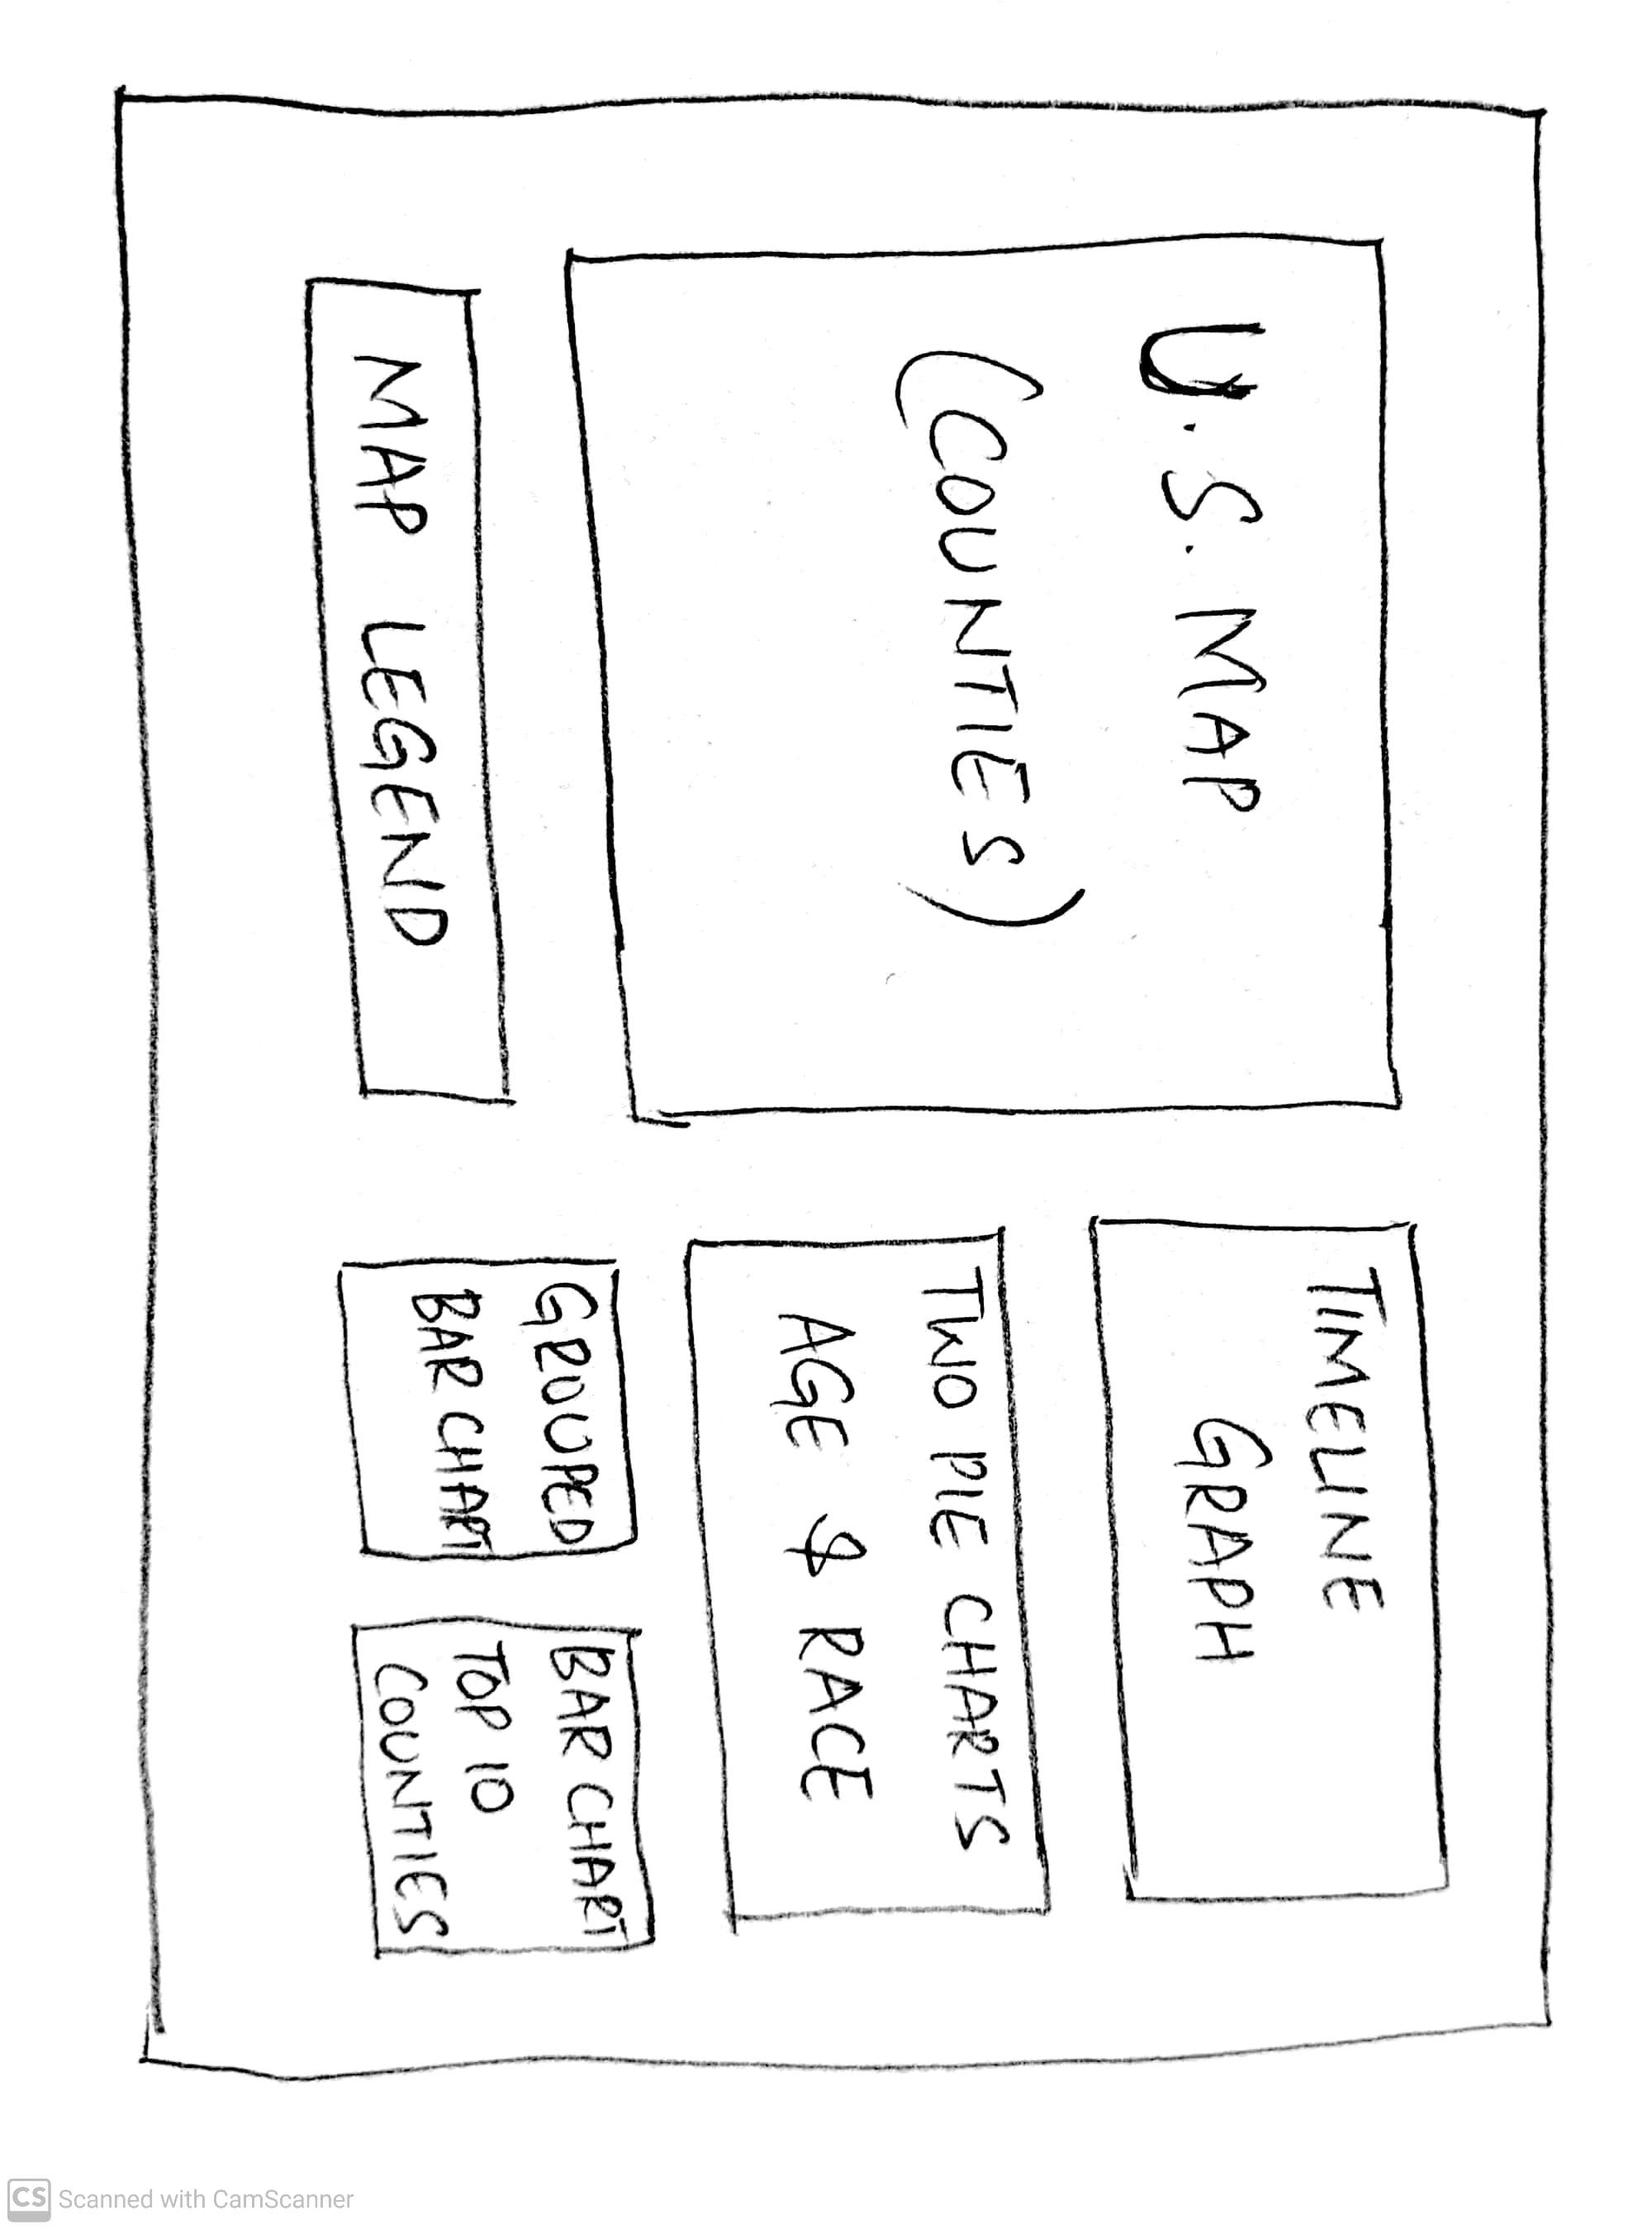 U.S. MAP
(COUNTIES)
MAP LEGEND
TIMELINE
GRAPH
TWO PIE CHARTS
AGE & RACE
GROUPED
BAR CHART
BAR CHART
TOP 10
COUNTIES
CS Scanned with CamScanner